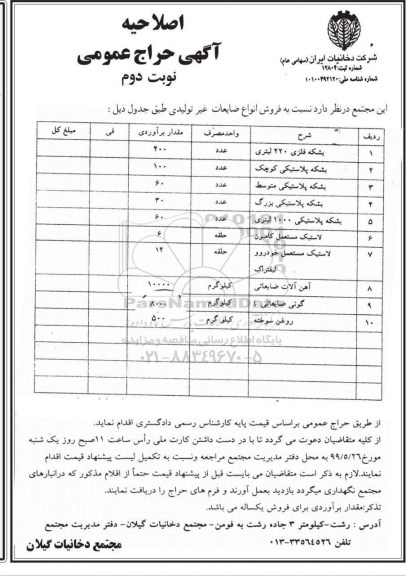 اصلاحیه
آگهی حراج عمومی
نوبت دوم
شرکت دخانیات ایران (سهامی عام)
شماره ثبت: ۱۲۸۰۴
شماره شناسه ملی: ۱۰۱۰۰۴۹۲۱۲۰
این مجتمع درنظر دارد نسبت به فروش انواع ضایعات غیر تولیدی طبق جدول ذیل :
ردیف شرح واحدمصرف مقدار برآوردی فی مبلغ کل
۱ بشکه فلزی ۲۲۰ لیتری عدد ۴۰۰
۲ بشکه پلاستیکی کوچک عدد ۱۰۰
۳ بشکه پلاستیکی متوسط عدد ۶۰
۴ بشکه پلاستیکی بزرگ عدد ۳۰
۵ بشکه پلاستیکی ۱۰۰۰ لیتری عدد ۶۰
۶ لاستیک مستعمل کامیون حلقه ۶
۷ لاستیک مستعمل خودروو لیفتراک حلقه ۱۲
۸ آهن آلات ضایعاتی کیلوگرم ۱۰۰۰۰
۹ گونی ضایعاتی کیلوگرم ۸۰۰۰
۱۰ روغن سوخته کیلوگرم ۵۰۰
ParsNamadData
پایگاه اطلاع رسانی مناقصه و مزایده
۰۲۱-۸۸۳۴۹۶۷۰-۵
از طریق حراج عمومی براساس قیمت پایه کارشناس رسمی دادگستری اقدام نماید.
از کلیه متقاضیان دعوت می گردد تا با در دست داشتن کارت ملی رأس ساعت ۱۱صبح روز یک شنبه
مورخ۹۹/۵/۲۶ به محل دفتر مدیریت مجتمع مراجعه ونسبت به تکمیل لیست پیشنهاد قیمت اقدام
نمایند.لازم به ذکر است متقاضیان می بایست قبل از پیشنهاد قیمت حتماً از اقلام مذکور که درانبارهای
مجتمع نگهداری میگردد بازدید بعمل آورند و فرم های حراج را دریافت نمایند.
تذکر:مقدار برآوردی برای فروش یکساله می باشد.
آدرس : رشت-کیلومتر ۳ جاده رشت به فومن- مجتمع دخانیات گیلان- دفتر مدیریت مجتمع
تلفن ۳۳۵۶۴۵۲۶-۰۱۳
مجتمع دخانیات گیلان